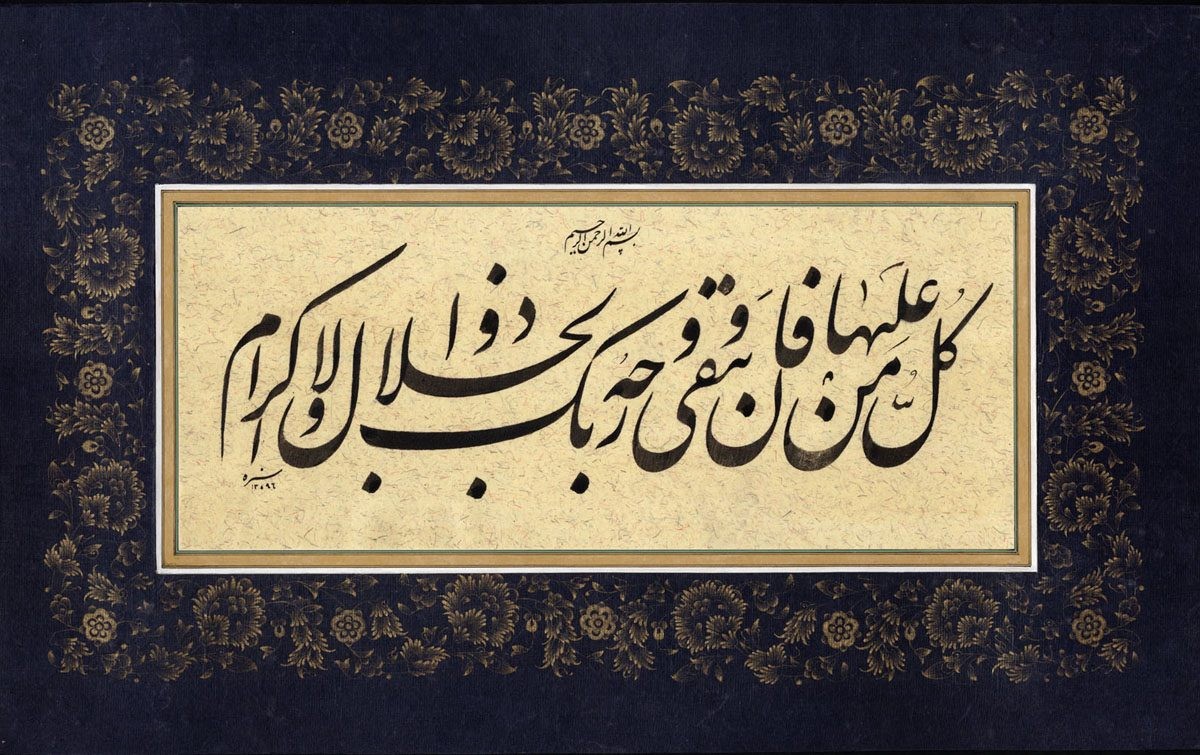 بسم الله الرحمن الرحیم
كُلُّ مَنْ عَلَيْهَا فَانٍ وَ يَبْقَى وَجْهُ رَبِّكَ ذُو الْجَلَالِ وَ الْإِكْرَامِ